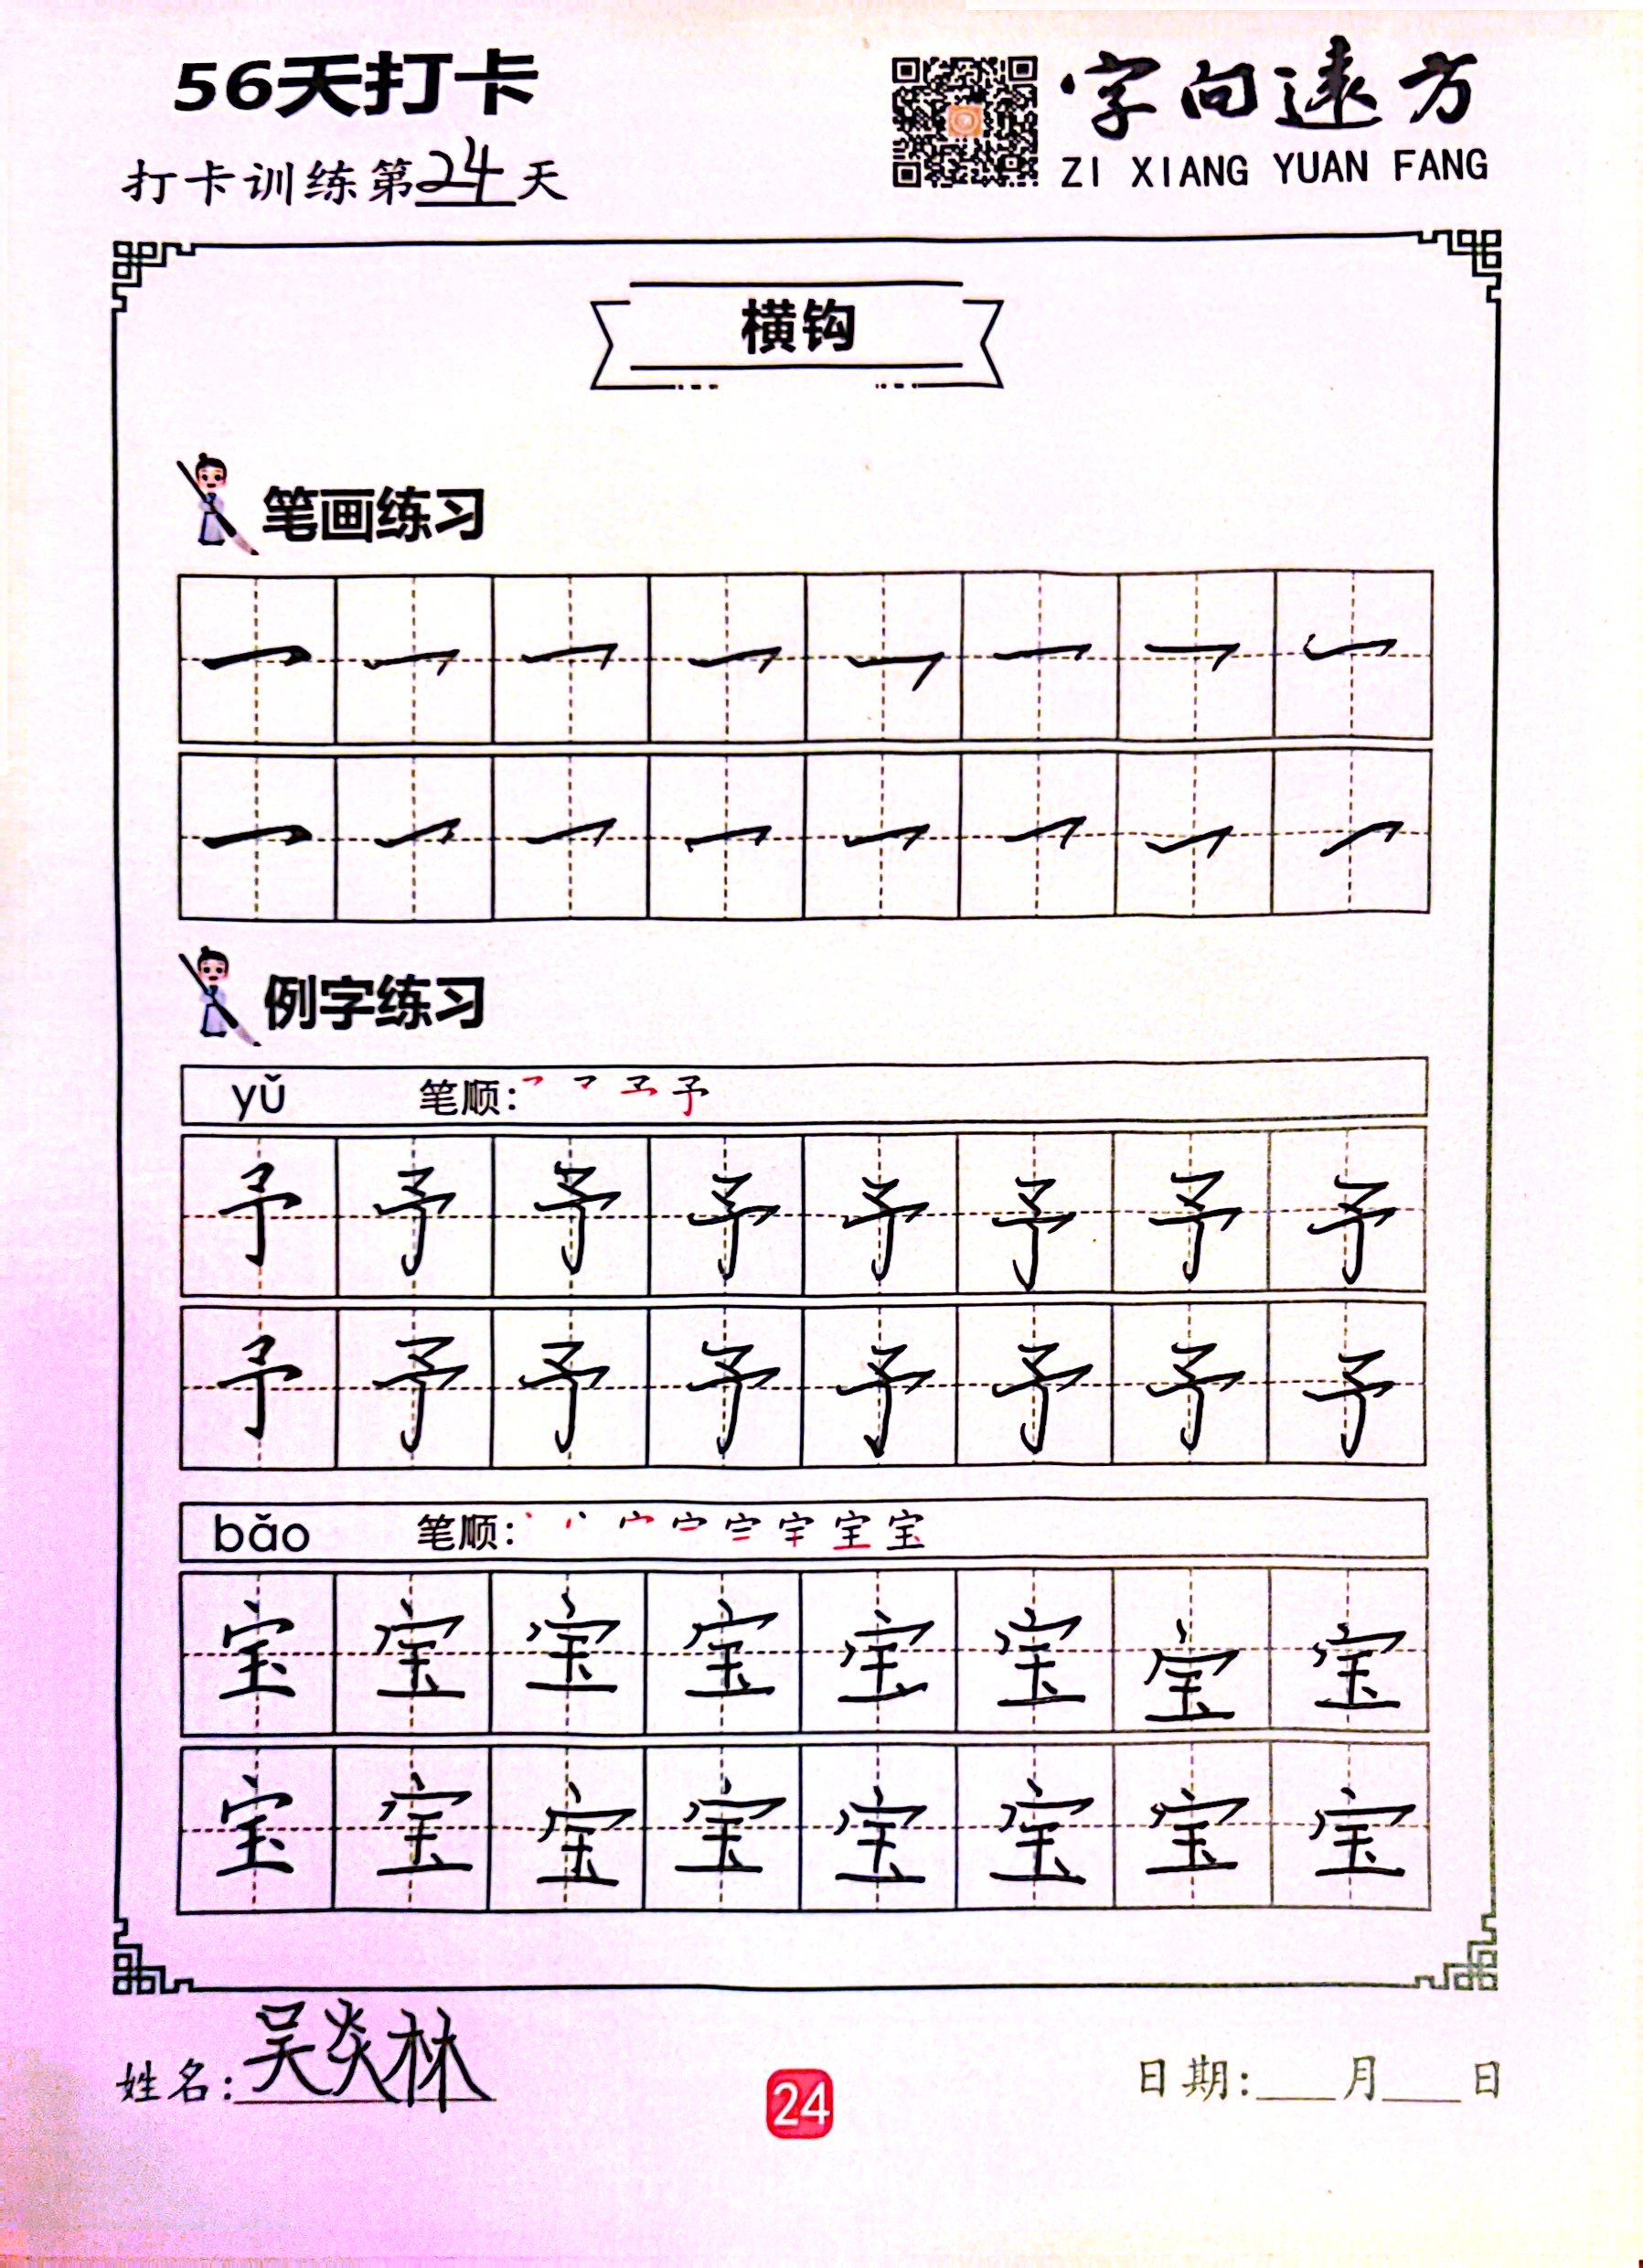 56天打卡
字向遠方
打卡训练第24天
ZI XIANG YUAN FANG
横钩
笔画练习
㇖ ㇖ ㇖ ㇖ ㇖ ㇖ ㇖ ㇖
㇖ ㇖ ㇖ ㇖ ㇖ ㇖ ㇖ ㇖
例字练习
yǔ 笔顺:
予 予 予 予 予 予 予 予
予 予 予 予 予 予 予 予
bǎo 笔顺:
宝 宝 宝 宝 宝 宝 宝 宝
宝 宝 宝 宝 宝 宝 宝 宝
姓名:吴炎林
24
日期:___月___日